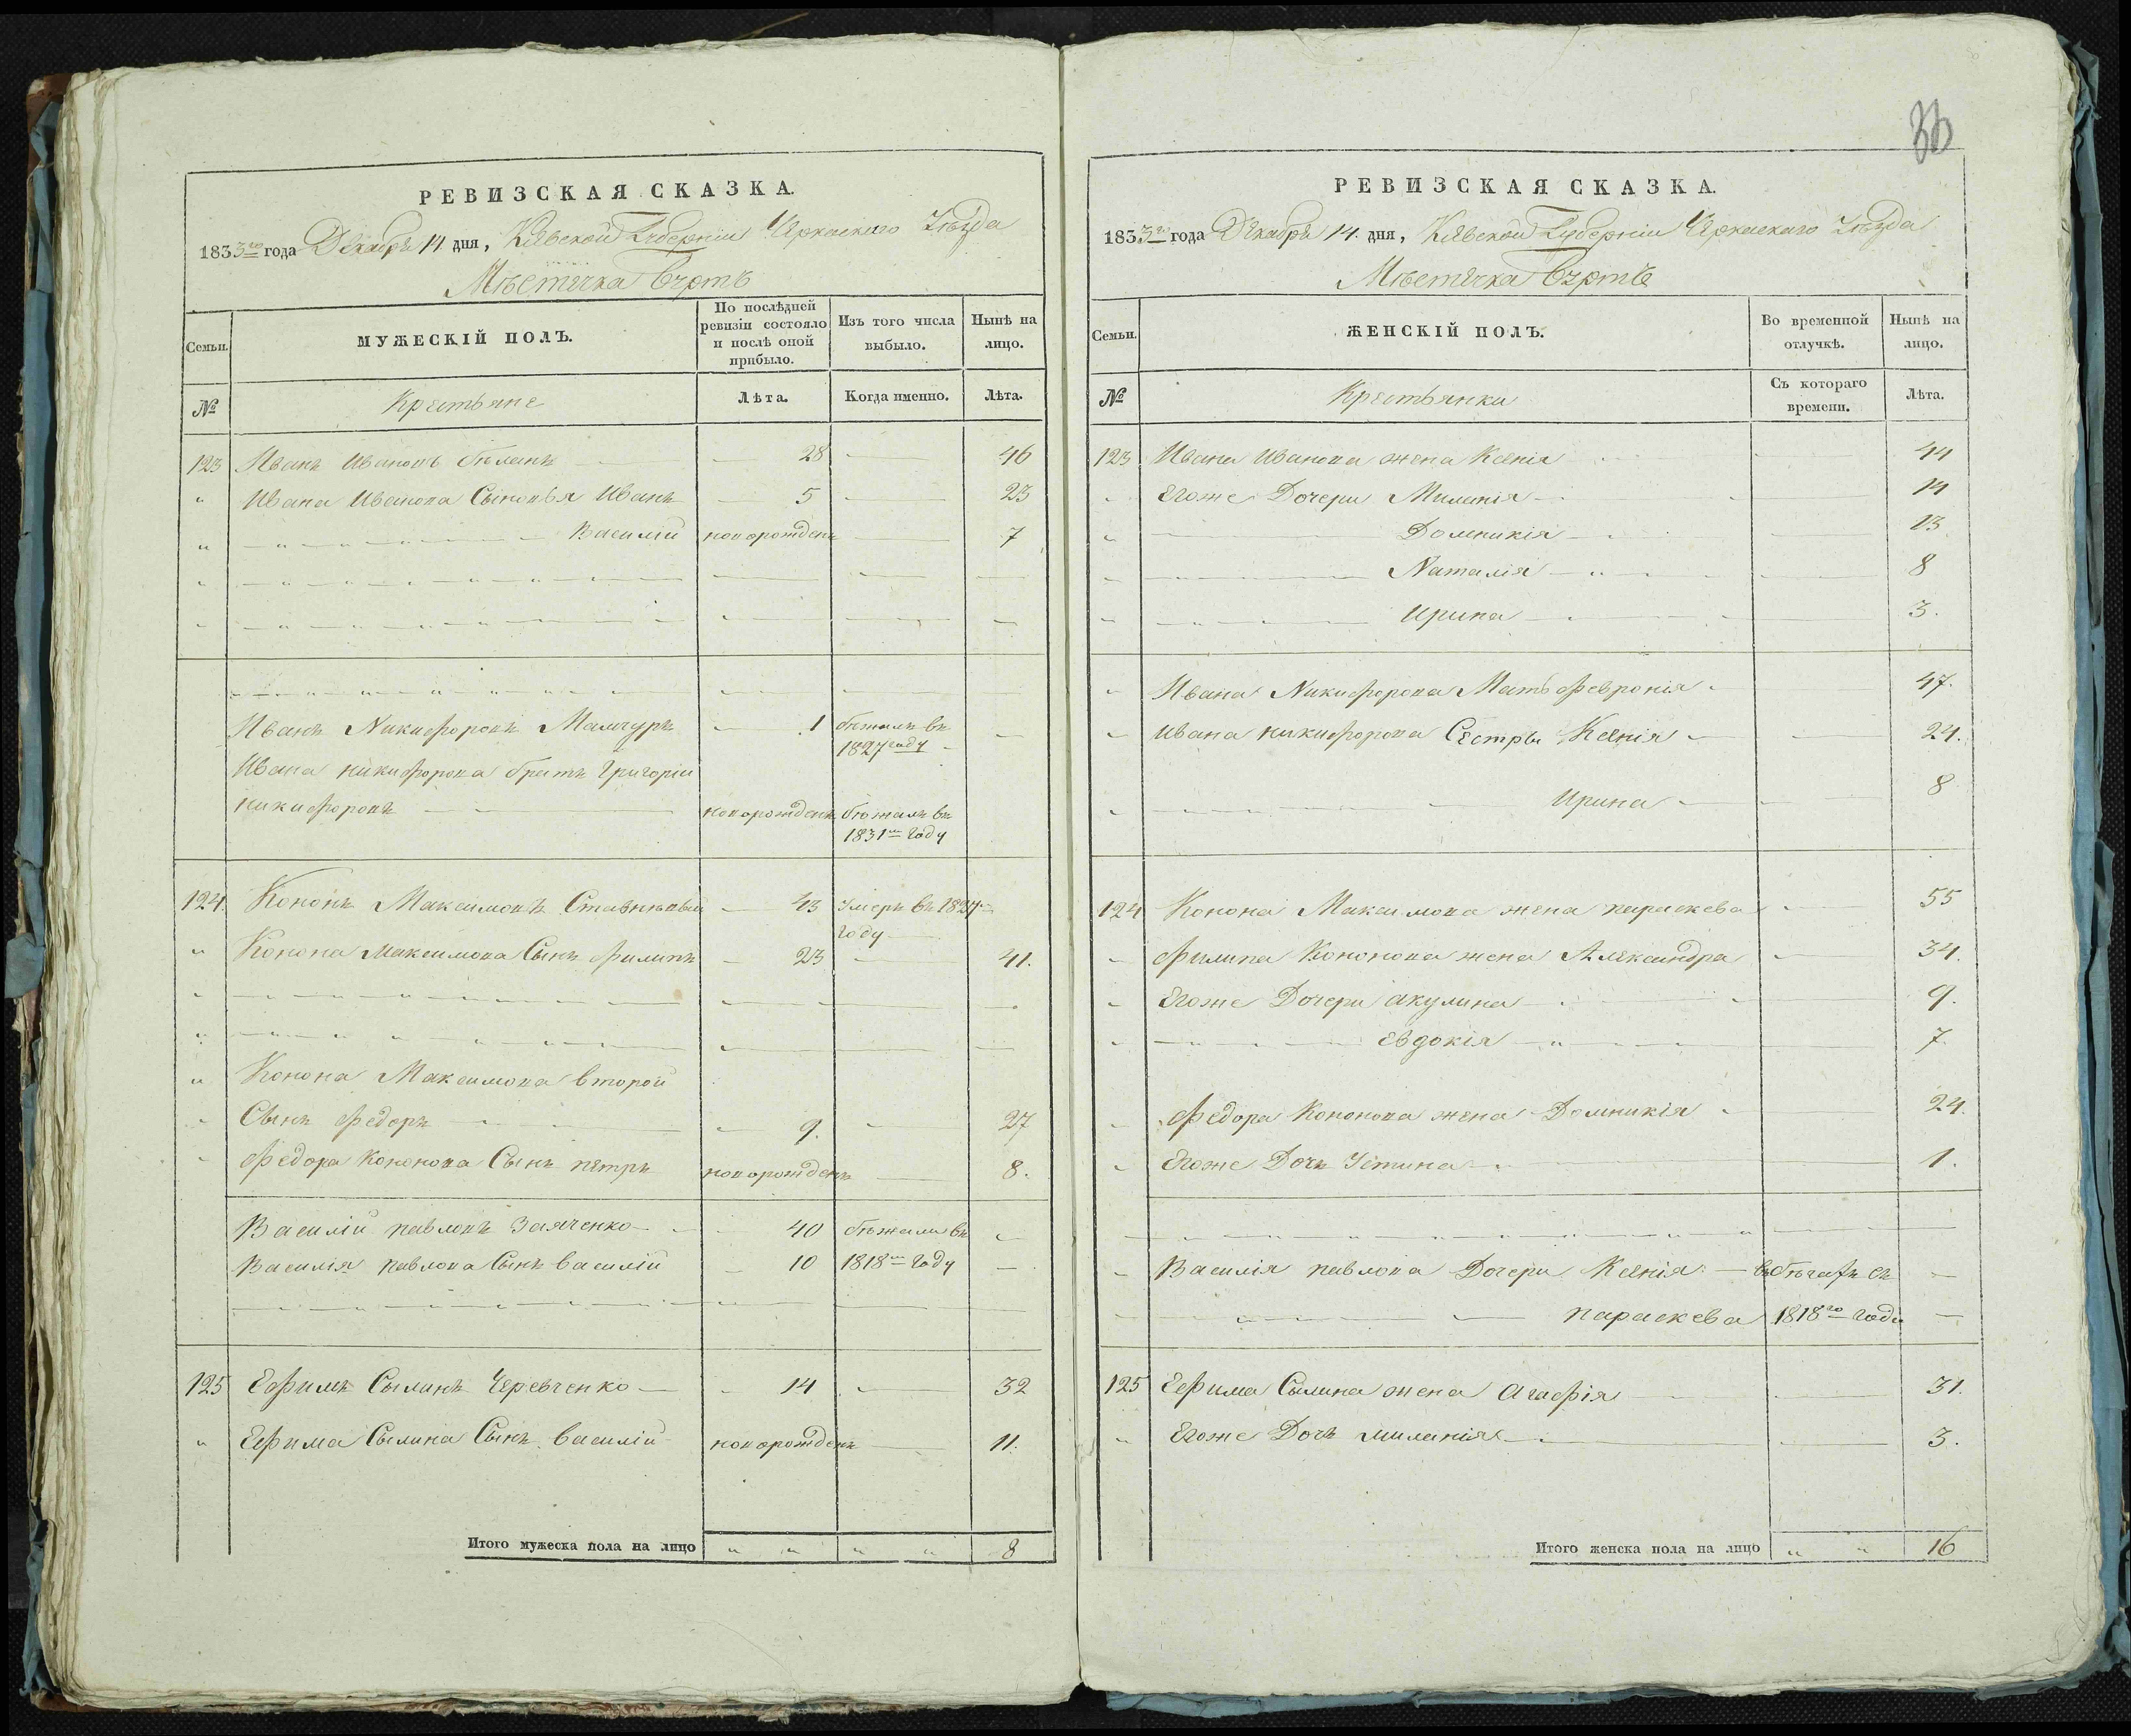 РЕВИЗСКАЯ СКАЗКА.
1833го года Декабря 14 дня, Кіевской Губерніи Черкаскаго Уѣзда
Мѣстечка
Семьи.
МУЖЕСКІЙ ПОЛЪ.
По послѣдней ревизіи состояло и послѣ оной прибыло.
Изъ того числа выбыло.
Нынѣ на лицо.
№
Крестьяне
Лѣта.
Когда именно.
Лѣта.
123 Иванъ Ивановъ Бѣланъ 28 46
Ивана Иванова Сыновья Иванъ 5 23
Василій новорожденъ 7
Иванъ Никифоровъ 1 бѣжалъ въ
1827 году
Ивана никифорова братъ Григоріи
никифоровъ новорожденъ бѣжалъ въ
1831м году
124. Кононъ Максимовъ 43 умеръ въ 1827м
году
Конона Максимова Сынъ филипъ 23 41.
Конона Максимова второй
Сынъ федоръ 9. 27
Федора Кононова Сынъ петръ новорожденъ 8.
Василій павловъ Заяченко 40 бѣжали въ
Василія павлова Сынъ василій 10 1818м году
125 Ефимъ Сылинъ Черевченко 14 32
Ефима Сылина Сынъ василій новорожденъ 11.
Итого мужеска пола на лицо 8
33
РЕВИЗСКАЯ СКАЗКА.
1833го года Декабря 14. дня, Кіевской Губерніи Черкаскаго Уѣзда
Мѣстечка
Семьи.
ЖЕНСКІЙ ПОЛЪ.
Во временной отлучкѣ.
Нынѣ на лицо.
№
Крестьянки
Съ котораго времени.
Лѣта.
123 Ивана Иванова жена Ксенія 44
Егоже Дочери Миланія 14
Домникія 13
Наталія 8
Ирина 3.
Ивана Никифорова Мать Февронія 47.
Ивана никифорова Сестры Ксенія 24.
Ирина 8
124 Конона Максимова жена параскева 55
Филипа Кононова жена Александра 34.
Егоже Дочери акулина 9.
Евдокія 7
Федора Кононова жена Домникія 24.
Егоже Дочь Устина 1.
Василія павлова Дочери Ксенія въ бѣгахъ съ
параскева 1818го года
125 Ефима Сылина жена Агафія 31.
Егоже Дочь миланія 3.
Итого женска пола на лицо 16